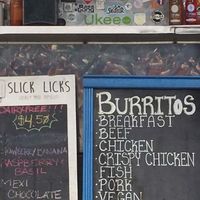 Ukeeo
SLICK LICKS
DAIRY FREE!!!
$4.50
RAWBERRY/BANANA
RASPBERRY/
BASIL
MEXI
CHOCOLATE
BURRITOS
• BREAKFAST
• BEEF
• CHICKEN
• CRISPY CHICKEN
• FISH
• PORK
• VEGAN